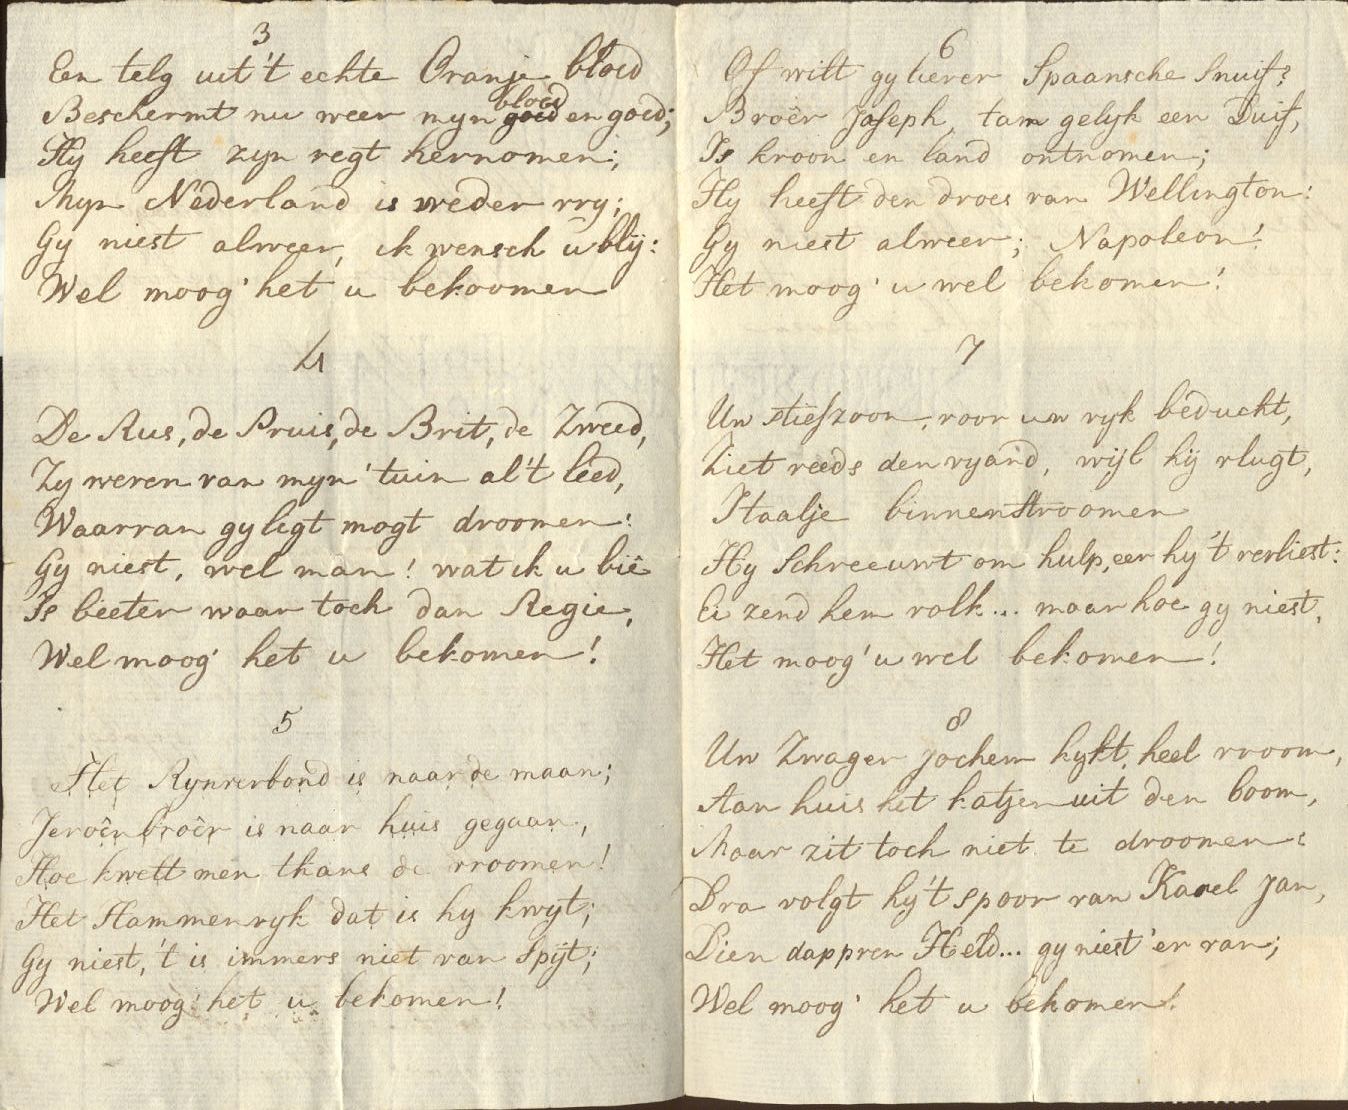 3
Een telg uit 't echte Oranje bloed
Beschermt nu weer myn goed bloed en goed;
Hy heeft zyn regt hernomen;
Myn Nederland is weder vry;
Gy niest alweer, ik wensch u blij:
Wel moog' het u bekoomen
4
De Rus, de Pruis, de Brit, de Zweed,
Zy weren van myn' tuin al 't leed,
Waarvan gy ligt mogt droomen:
Gy niest, wel man! wat ik u biê
Is beeter waar toch dan Regie,
Wel moog' het u bekomen!
5
Het Rynverbond is naar de maan;
Jeroên broêr is naar huis gegaan,
Hoe kwelt men thans de vroomen!
Het Hammenryk dat is hy kwyt;
Gy niest, 't is immers niet van Spijt;
Wel moog' het u bekomen!
6
Of wilt gy liever Spaansche Snuif?
Broêr Joseph, tam gelyk een Duif,
Is kroon en land ontnomen;
Hy heeft den droes van Wellington:
Gy niest alweer; Napoleon!
Het moog' u wel bekomen!
7
Uw stiefzoon, voor uw ryk beducht,
Ziet reeds den vyand, wijl hij vlugt,
Itaalje binnenstroomen
Hy Schreeuwt om hulp, eer hy 't verliest:
Ei zend hem volk... maar hoe gy niest,
Het moog' u wel bekomen!
8
Uw Zwager Jochem kykt, heel vroom,
Aan huis het katjen uit den boom,
Maar zit toch niet te droomen:
Dra volgt hy 't spoor van Karel Jan,
Dien dappren Held... gy niest 'er van;
Wel moog' het u bekomen!